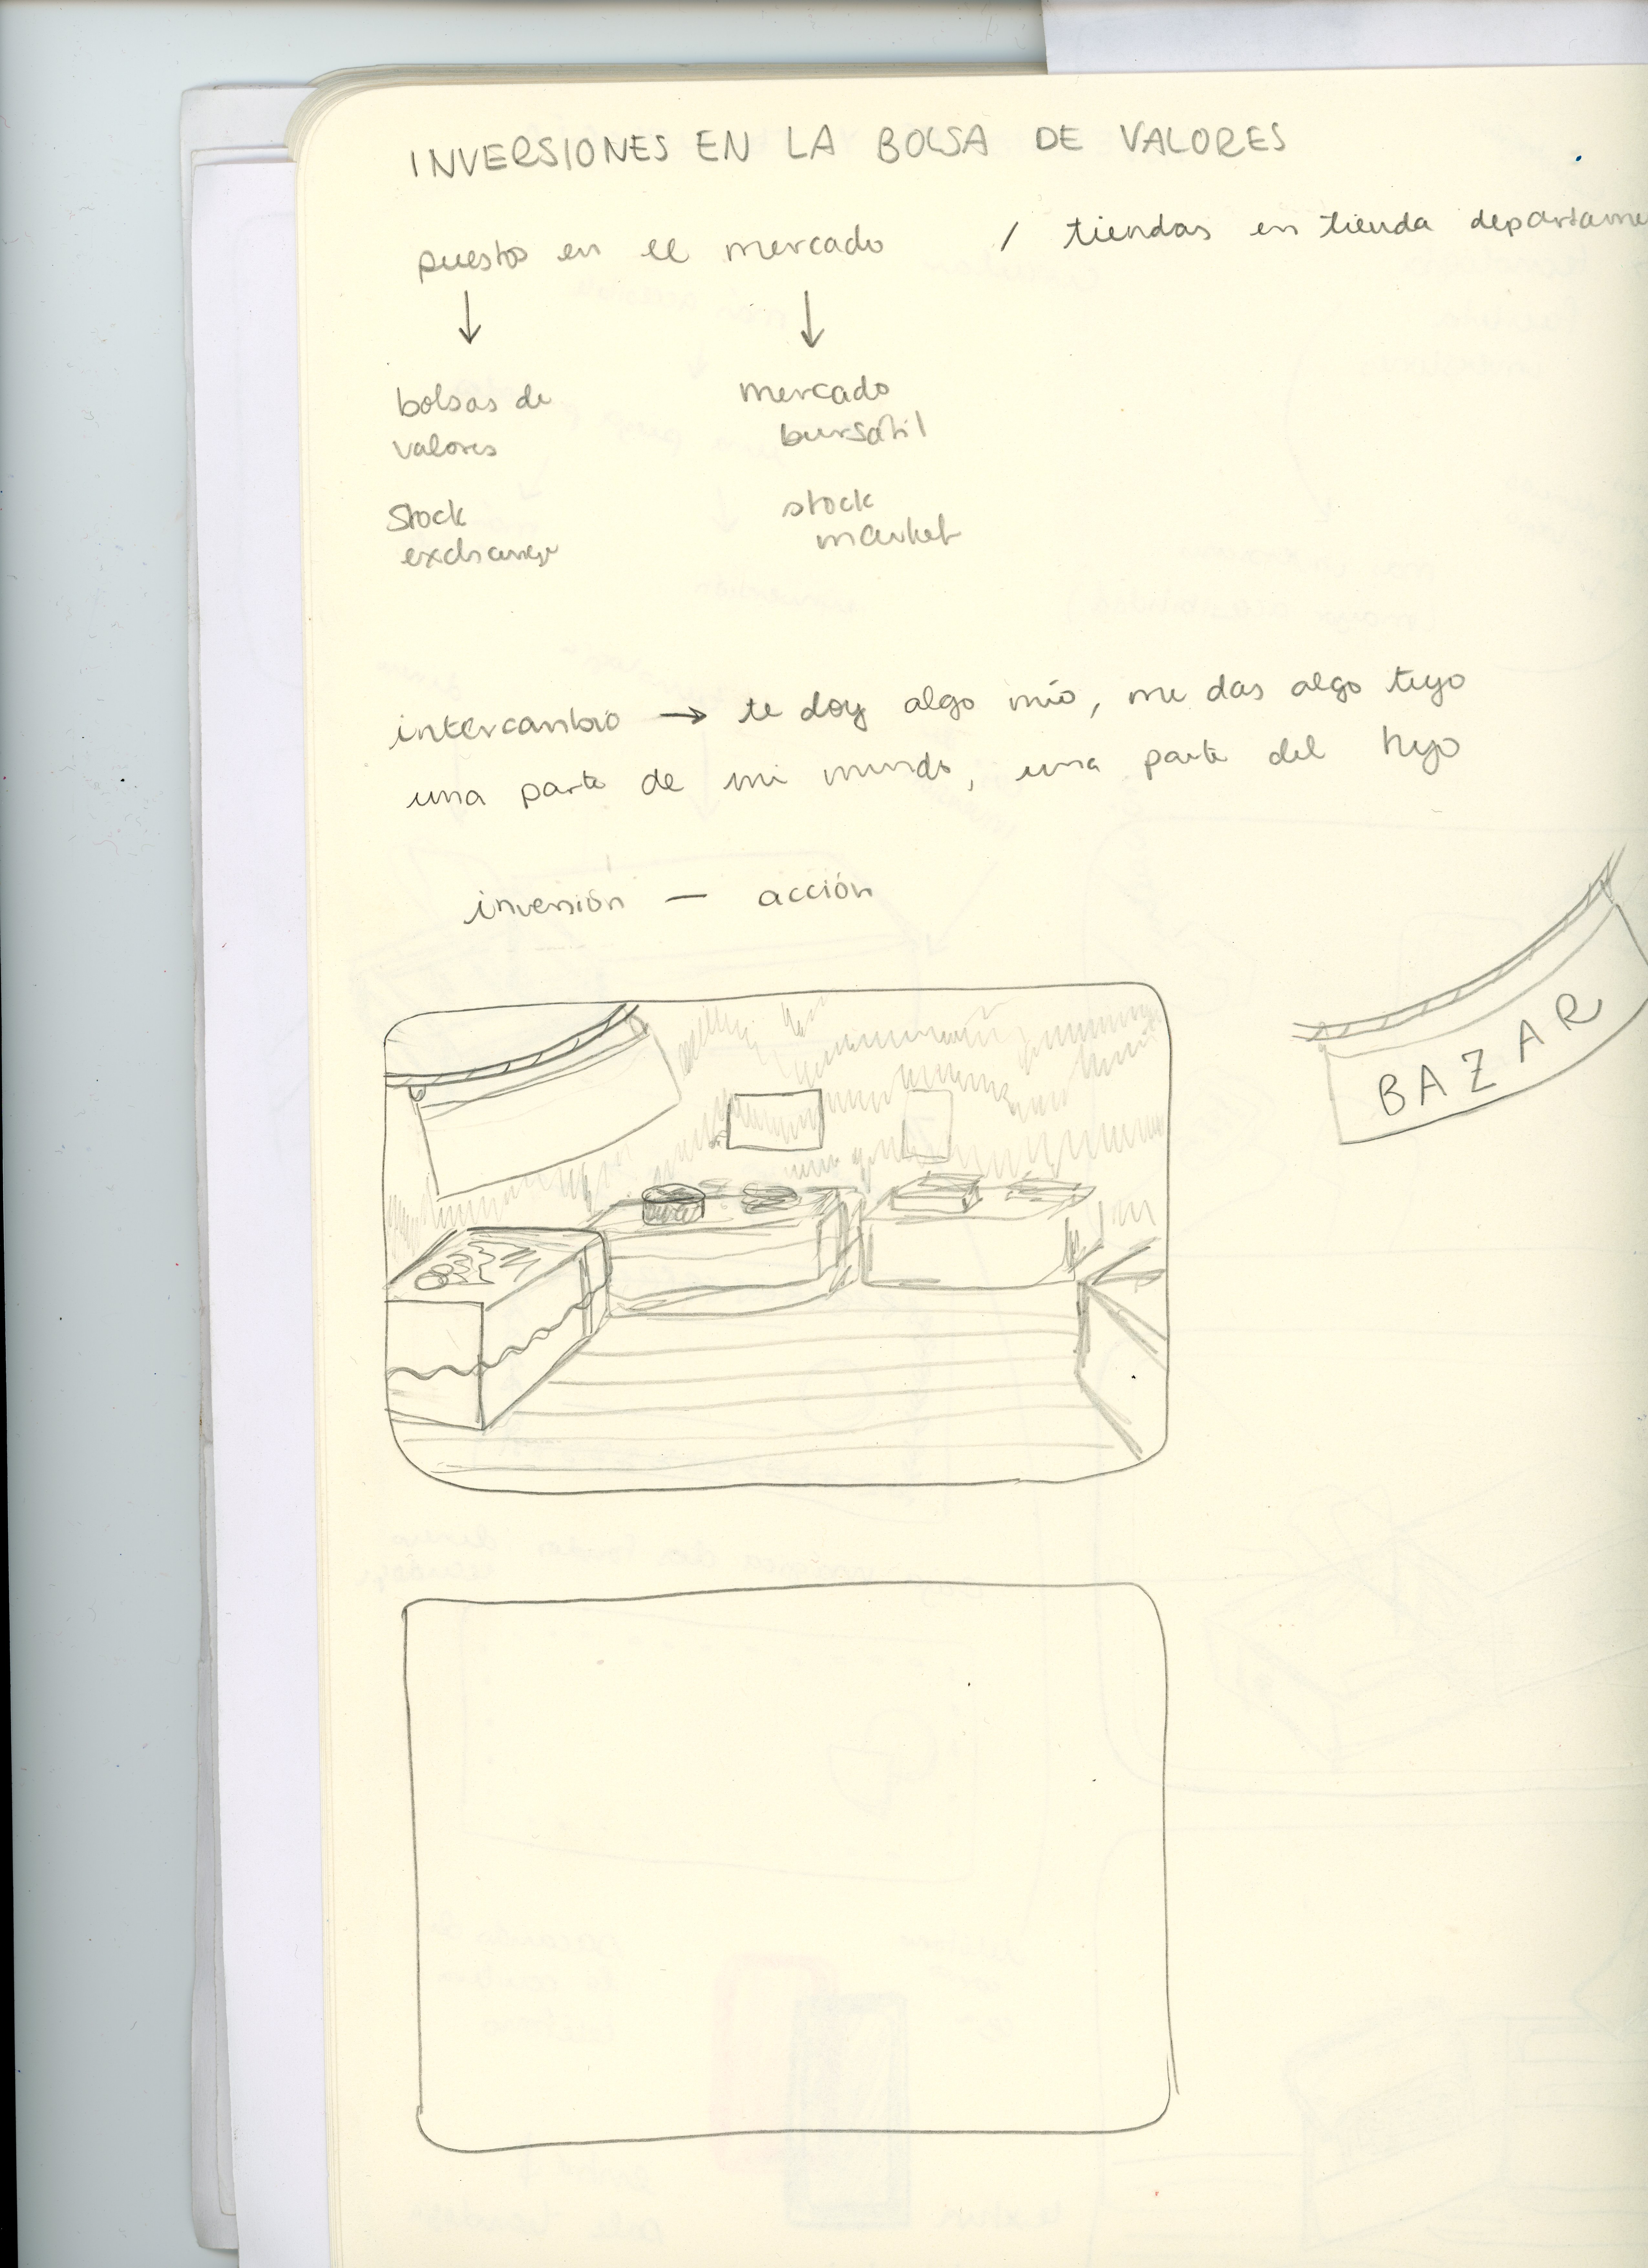 INVERSIONES EN LA BOLSA DE VALORES
puestos en el mercado / tiendas en tienda departame
↓ ↓
bolsas de mercado
valores bursátil
Stock stock
exchange market
intercambio → te doy algo mío, me das algo tuyo
una parte de mi mundo, una parte del tuyo
inversión — acción
BAZAR